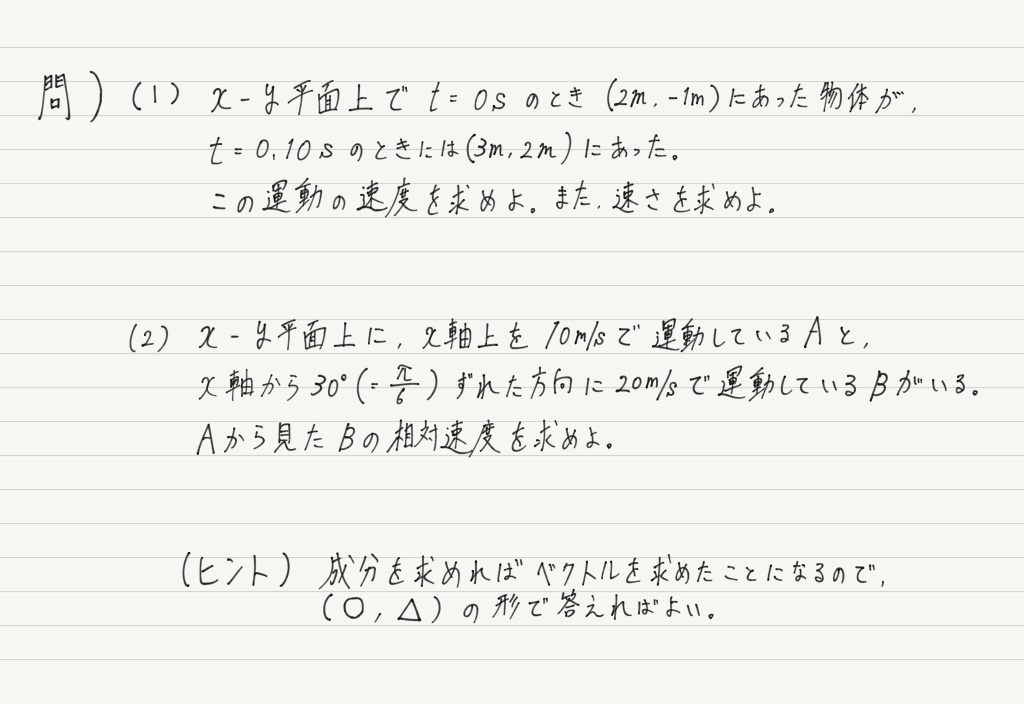 問) (1) x-y平面上で t = 0s のとき (2m, -1m)にあった物体が,
t = 0.10s のときには(3m, 2m)にあった。
この運動の速度を求めよ。また, 速さを求めよ。
(2) x-y平面上に, x軸上を 10m/sで運動しているAと,
x軸から30°(=π/6)ずれた方向に20m/sで運動しているBがいる。
Aから見たBの相対速度を求めよ。
(ヒント) 成分を求めればベクトルを求めたことになるので,
(○, △)の形で答えればよい。